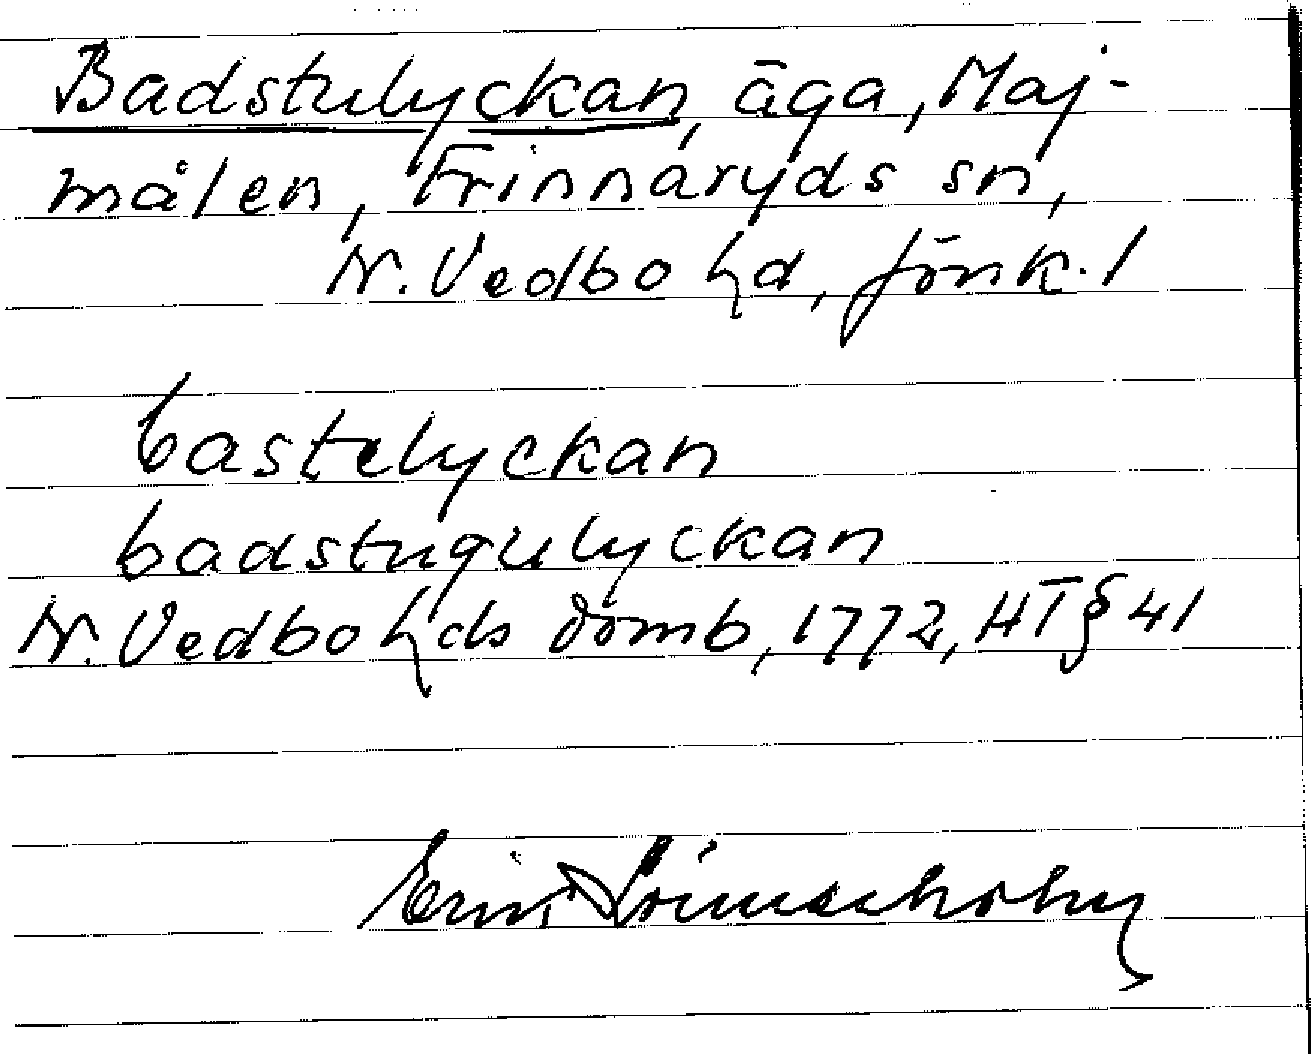 Badstulyckan, äga, Maj-
målen, Frinnaryds sn,
N. Vedbo hd, Jönk. l
bastelyckan
badstugulyckan
N. Vedbo hds domb, 1772, HT § 41